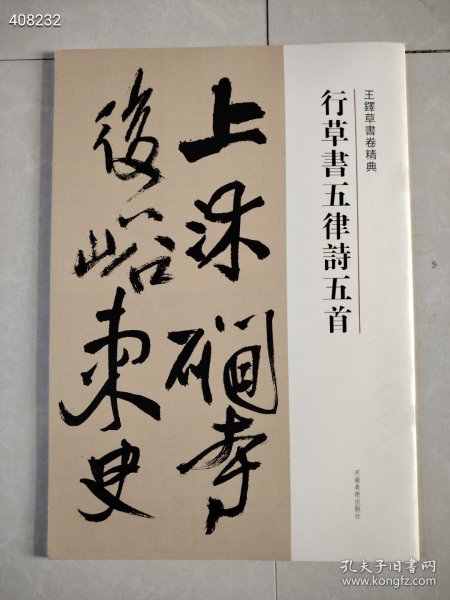 408232
王鐸草書卷精典
行草書五律詩五首
河南美術出版社
上沐磵寺
後峪
孔夫子旧书网
www.kongfz.com